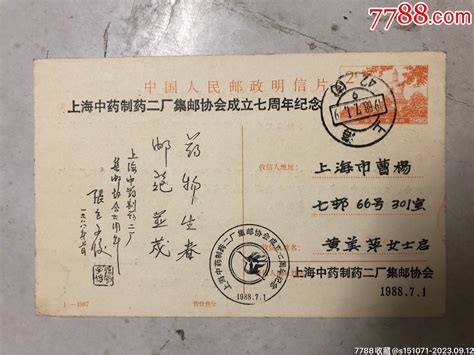 7788.com
中国人民邮政明信片
上海中药制药二厂集邮协会成立七周年纪念
上海
1988.7.1
收信人地址：
上海市曹杨
七邨66号301室
黄美萍女士启
上海中药制药二厂集邮协会
1988.7.1
药物生春
邮苑并茂
上海中药制药二厂
集邮协会七周年
一九八八年七月
上海中药制药二厂集邮协会成立七周年纪念
1988.7.1
1—1987
售价叁分
7788收藏@s151071-2023.09.12